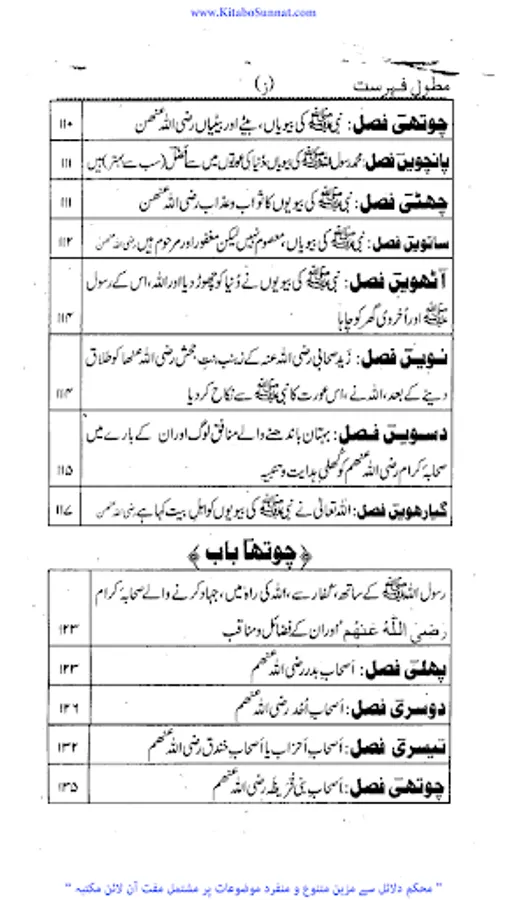 www.KitaboSunnat.com
مطول فہرست (ز)
چوتھی فصل: نبی ﷺ کی بیویاں، بیٹے اور بیٹیاں رضی اللہ عنھن ۱۱۰
پانچویں فصل: محمد رسول اللہ ﷺ کی بیویاں، دُنیا کی عورتوں میں سے اَفضل (سب سے بہتر) ہیں ۱۱۱
چھٹی فصل: نبی ﷺ کی بیویوں کا ثواب و عذاب رضی اللہ عنھن ۱۱۱
ساتویں فصل: نبی ﷺ کی بیویاں، معصوم نہیں لیکن مغفور اور مرحوم ہیں رضی اللہ عنھن ۱۱۲
آٹھویں فصل: نبی ﷺ کی بیویوں نے دُنیا کو چھوڑ دیا اور اللہ، اس کے رسول
ﷺ اور اُخروی گھر کو چاہا ۱۱۴
نویں فصل: زید صحابی رضی اللہ عنہ کے زینب بنتِ جحش رضی اللہ عنھا کو طلاق
دینے کے بعد، اللہ نے، اس عورت کا نبی ﷺ سے نکاح کر دیا ۱۱۴
دسویں فصل: بہتان باندھنے والے منافق لوگ اور ان کے بارے میں
صحابۂ کرام رضی اللہ عنھم کو کُھلی ہدایت و تنبیہ ۱۱۵
گیارھویں فصل: اللہ تعالیٰ نے نبی ﷺ کی بیویوں کو اہلِ بیت کہا ہے رضی اللہ عنھن ۱۱۷
﴿چوتھا باب﴾
رسول اللہ ﷺ کے ساتھ، کفار سے، اللہ کی راہ میں، جہاد کرنے والے صحابۂ کرام
رَضِیَ اللّٰہُ عَنْہُم اور ان کے فضائل و مناقب ۱۲۳
پہلی فصل: اَصحابِ بدر رضی اللہ عنھم ۱۲۳
دوسری فصل: اَصحابِ اُحد رضی اللہ عنھم ۱۲۶
تیسری فصل: اَصحابِ اَحزاب یا اَصحابِ خندق رضی اللہ عنھم ۱۳۲
چوتھی فصل: اَصحابِ بنی قُریظہ رضی اللہ عنھم ۱۳۵
" محکم دلائل سے مزین متنوع و منفرد موضوعات پر مشتمل مفت آن لائن مکتبہ "